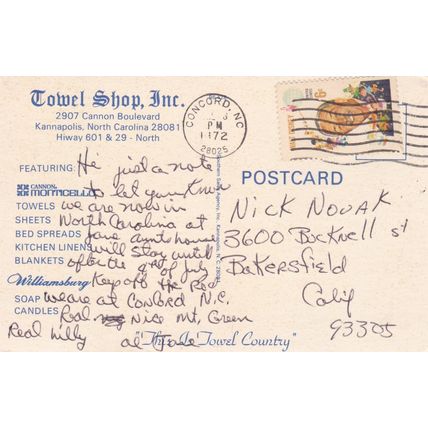 Towel Shop, Inc.
2907 Cannon Boulevard
Kannapolis, North Carolina 28081
Hiway 601 & 29 - North
FEATURING:
CANNON
MONTICELLO
TOWELS
SHEETS
BED SPREADS
KITCHEN LINENS
BLANKETS
Williamsburg
SOAP
CANDLES
"This Is Towel Country"
Hi just a note
to let you know
we are now in
North Carolina at
Jane Aunts house
will stay until
after the of July
Keep on the Rod
we are at Concord N.C.
Real Nice Mt, Green
Real Hilly al Jane
CONCORD, NC
PM
1972
28025
POSTCARD
Nick Novak
3600 Bucknell St
Bakersfield
Calif
93305